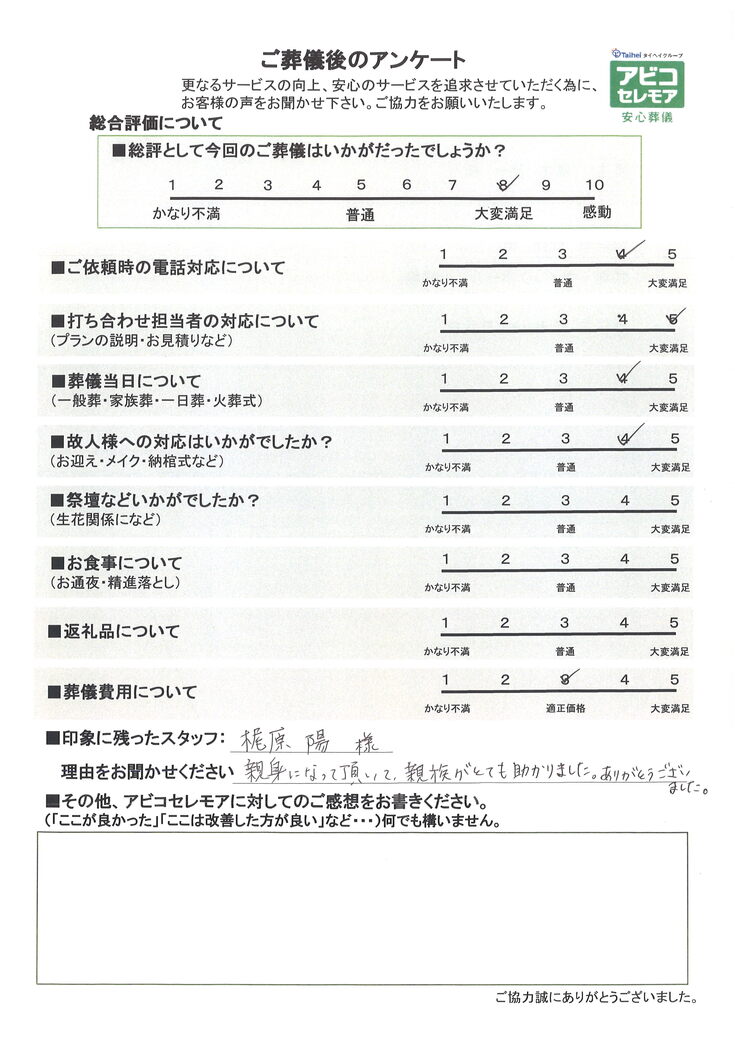 ご葬儀後のアンケート
Taihei タイヘイグループ
アビコ
セレモア
安心葬儀
更なるサービスの向上、安心のサービスを追求させていただく為に、
お客様の声をお聞かせ下さい。ご協力をお願いいたします。
総合評価について
■総評として今回のご葬儀はいかがだったでしょうか？
1 2 3 4 5 6 7 8 9 10
かなり不満 普通 大変満足 感動
■ご依頼時の電話対応について
1 2 3 4 5
かなり不満 普通 大変満足
■打ち合わせ担当者の対応について
(プランの説明・お見積りなど)
1 2 3 4 5
かなり不満 普通 大変満足
■葬儀当日について
(一般葬・家族葬・一日葬・火葬式)
1 2 3 4 5
かなり不満 普通 大変満足
■故人様への対応はいかがでしたか？
(お迎え・メイク・納棺式など)
1 2 3 4 5
かなり不満 普通 大変満足
■祭壇などいかがでしたか？
(生花関係になど)
1 2 3 4 5
かなり不満 普通 大変満足
■お食事について
(お通夜・精進落とし)
1 2 3 4 5
かなり不満 普通 大変満足
■返礼品について
1 2 3 4 5
かなり不満 普通 大変満足
■葬儀費用について
1 2 3 4 5
かなり不満 適正価格 大変満足
■印象に残ったスタッフ： 梶原 陽 様
理由をお聞かせください 親身になって頂いて、親族がとても助かりました。ありがとうござい
ました。
■その他、アビコセレモアに対してのご感想をお書きください。
(「ここが良かった」「ここは改善した方が良い」など・・・)何でも構いません。
ご協力誠にありがとうございました。